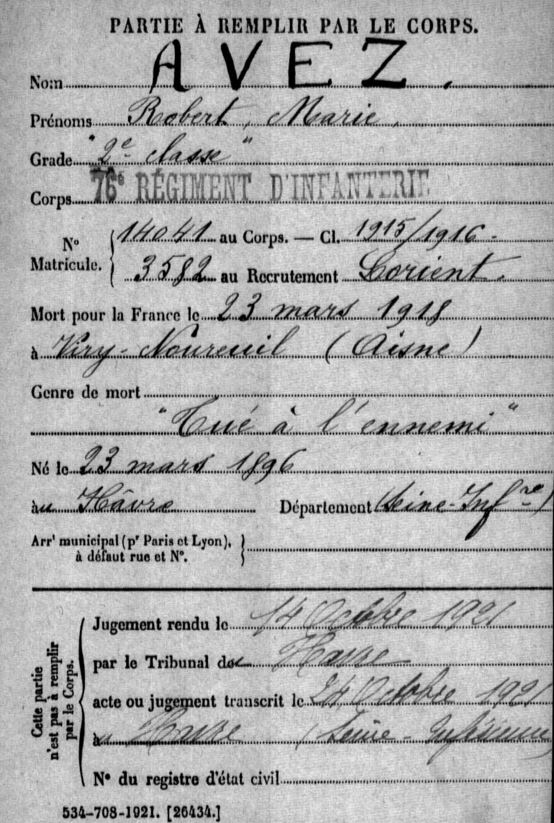 PARTIE À REMPLIR PAR LE CORPS.
Nom AVEZ.
Prénoms Robert, Marie,
Grade "2e classe"
Corps 76e RÉGIMENT D'INFANTERIE
N° Matricule. 14041 au Corps. — Cl. 1915/1916 -
3582 au Recrutement Lorient.
Mort pour la France le 23 mars 1918
à Viry-Noureuil (Aisne)
Genre de mort
"Tué à l'ennemi"
Né le 23 mars 1896
au Hâvre Département (Seine-Infre)
Arrt municipal (pr Paris et Lyon),
à défaut rue et N°.
Cette partie n'est pas à remplir par le Corps.
Jugement rendu le 14 Octobre 1921
par le Tribunal du Havre
acte ou jugement transcrit le 24 Octobre 1921
au Havre (Seine-Inférieure
N° du registre d'état civil
534-708-1921. [26434.]